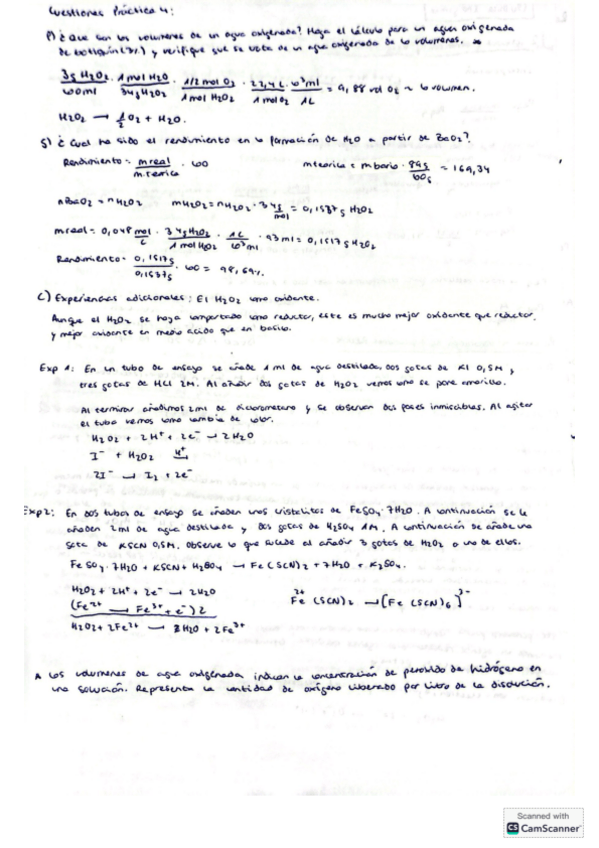 Cuestiones Práctica 4:
P) ¿Que son los volumenes de un agua oxigenada? Haga el cálculo para un agua oxigenada
de botiquín (3%) y verifique que se trata de un agua oxigenada de 10 volumenes. *
3g H2O2 / 100ml · 1 mol H2O / 34g H2O2 · 1/2 mol O2 / 1 mol H2O2 · 22,4 L / 1 mol O2 · 10³ ml / 1L = 9,88 vol O2 ~ 10 volumen.
H2O2 → 1/2 O2 + H2O.
5) ¿Cual ha sido el rendimiento en la formación de H2O a partir de BaO2?
Rendimiento = m real / m teorica · 100 m teorica = m bario · 89g / 100g = 169,34
nBaO2 = nH2O2 mH2O2 = nH2O2 · 34 g/mol = 0,1537g H2O2
m real = 0,048 mol/L · 34g H2O2 / 1 mol H2O2 · 1L / 10³ ml · 93 ml = 0,1517g H2O2
Rendimiento = 0,1517g / 0,1537g · 100 = 98,69%.
C) Experiencias adicionales: El H2O2 como oxidante.
Aunque el H2O2 se haya comportado como reductor, este es mucho mejor oxidante que reductor
y mejor oxidante en medio ácido que en basico.
Exp 1: En un tubo de ensayo se añade 1 ml de agua destilada, dos gotas de KI 0,5M y
tres gotas de HCl 2M. Al añadir dos gotas de H2O2 vemos como se pone amarillo.
Al terminar añadimos 2ml de diclorometano y se observan dos fases inmiscibles. Al agitar
el tubo vemos como cambia de color.
H2O2 + 2H⁺ + 2e⁻ → 2H2O
I⁻ + H2O2 H⁺→
2I⁻ → I2 + 2e⁻
Exp 2: En dos tubos de ensayo se añaden unos cristalitos de FeSO4·7H2O. A continuación se le
añaden 2ml de agua destilada y dos gotas de H2SO4 1M. A continuación se añade una
gota de KSCN 0,5M. Observe lo que sucede al añadir 3 gotas de H2O2 a uno de ellos.
FeSO4·7H2O + KSCN + H2SO4 → Fe(SCN)2 + 7H2O + K2SO4.
H2O2 + 2H⁺ + 2e⁻ → 2H2O
(Fe²⁺ → Fe³⁺ + e⁻) 2 Fe²⁺(SCN)2 → [Fe(SCN)6]³⁻
H2O2 + 2Fe²⁺ → 2H2O + 2Fe³⁺
* Los volumenes de agua oxigenada, indican la concentración de peroxido de hidrógeno en
una solución. Representa la cantidad de oxígeno liberado por litro de la disolución.
Scanned with
CS CamScanner